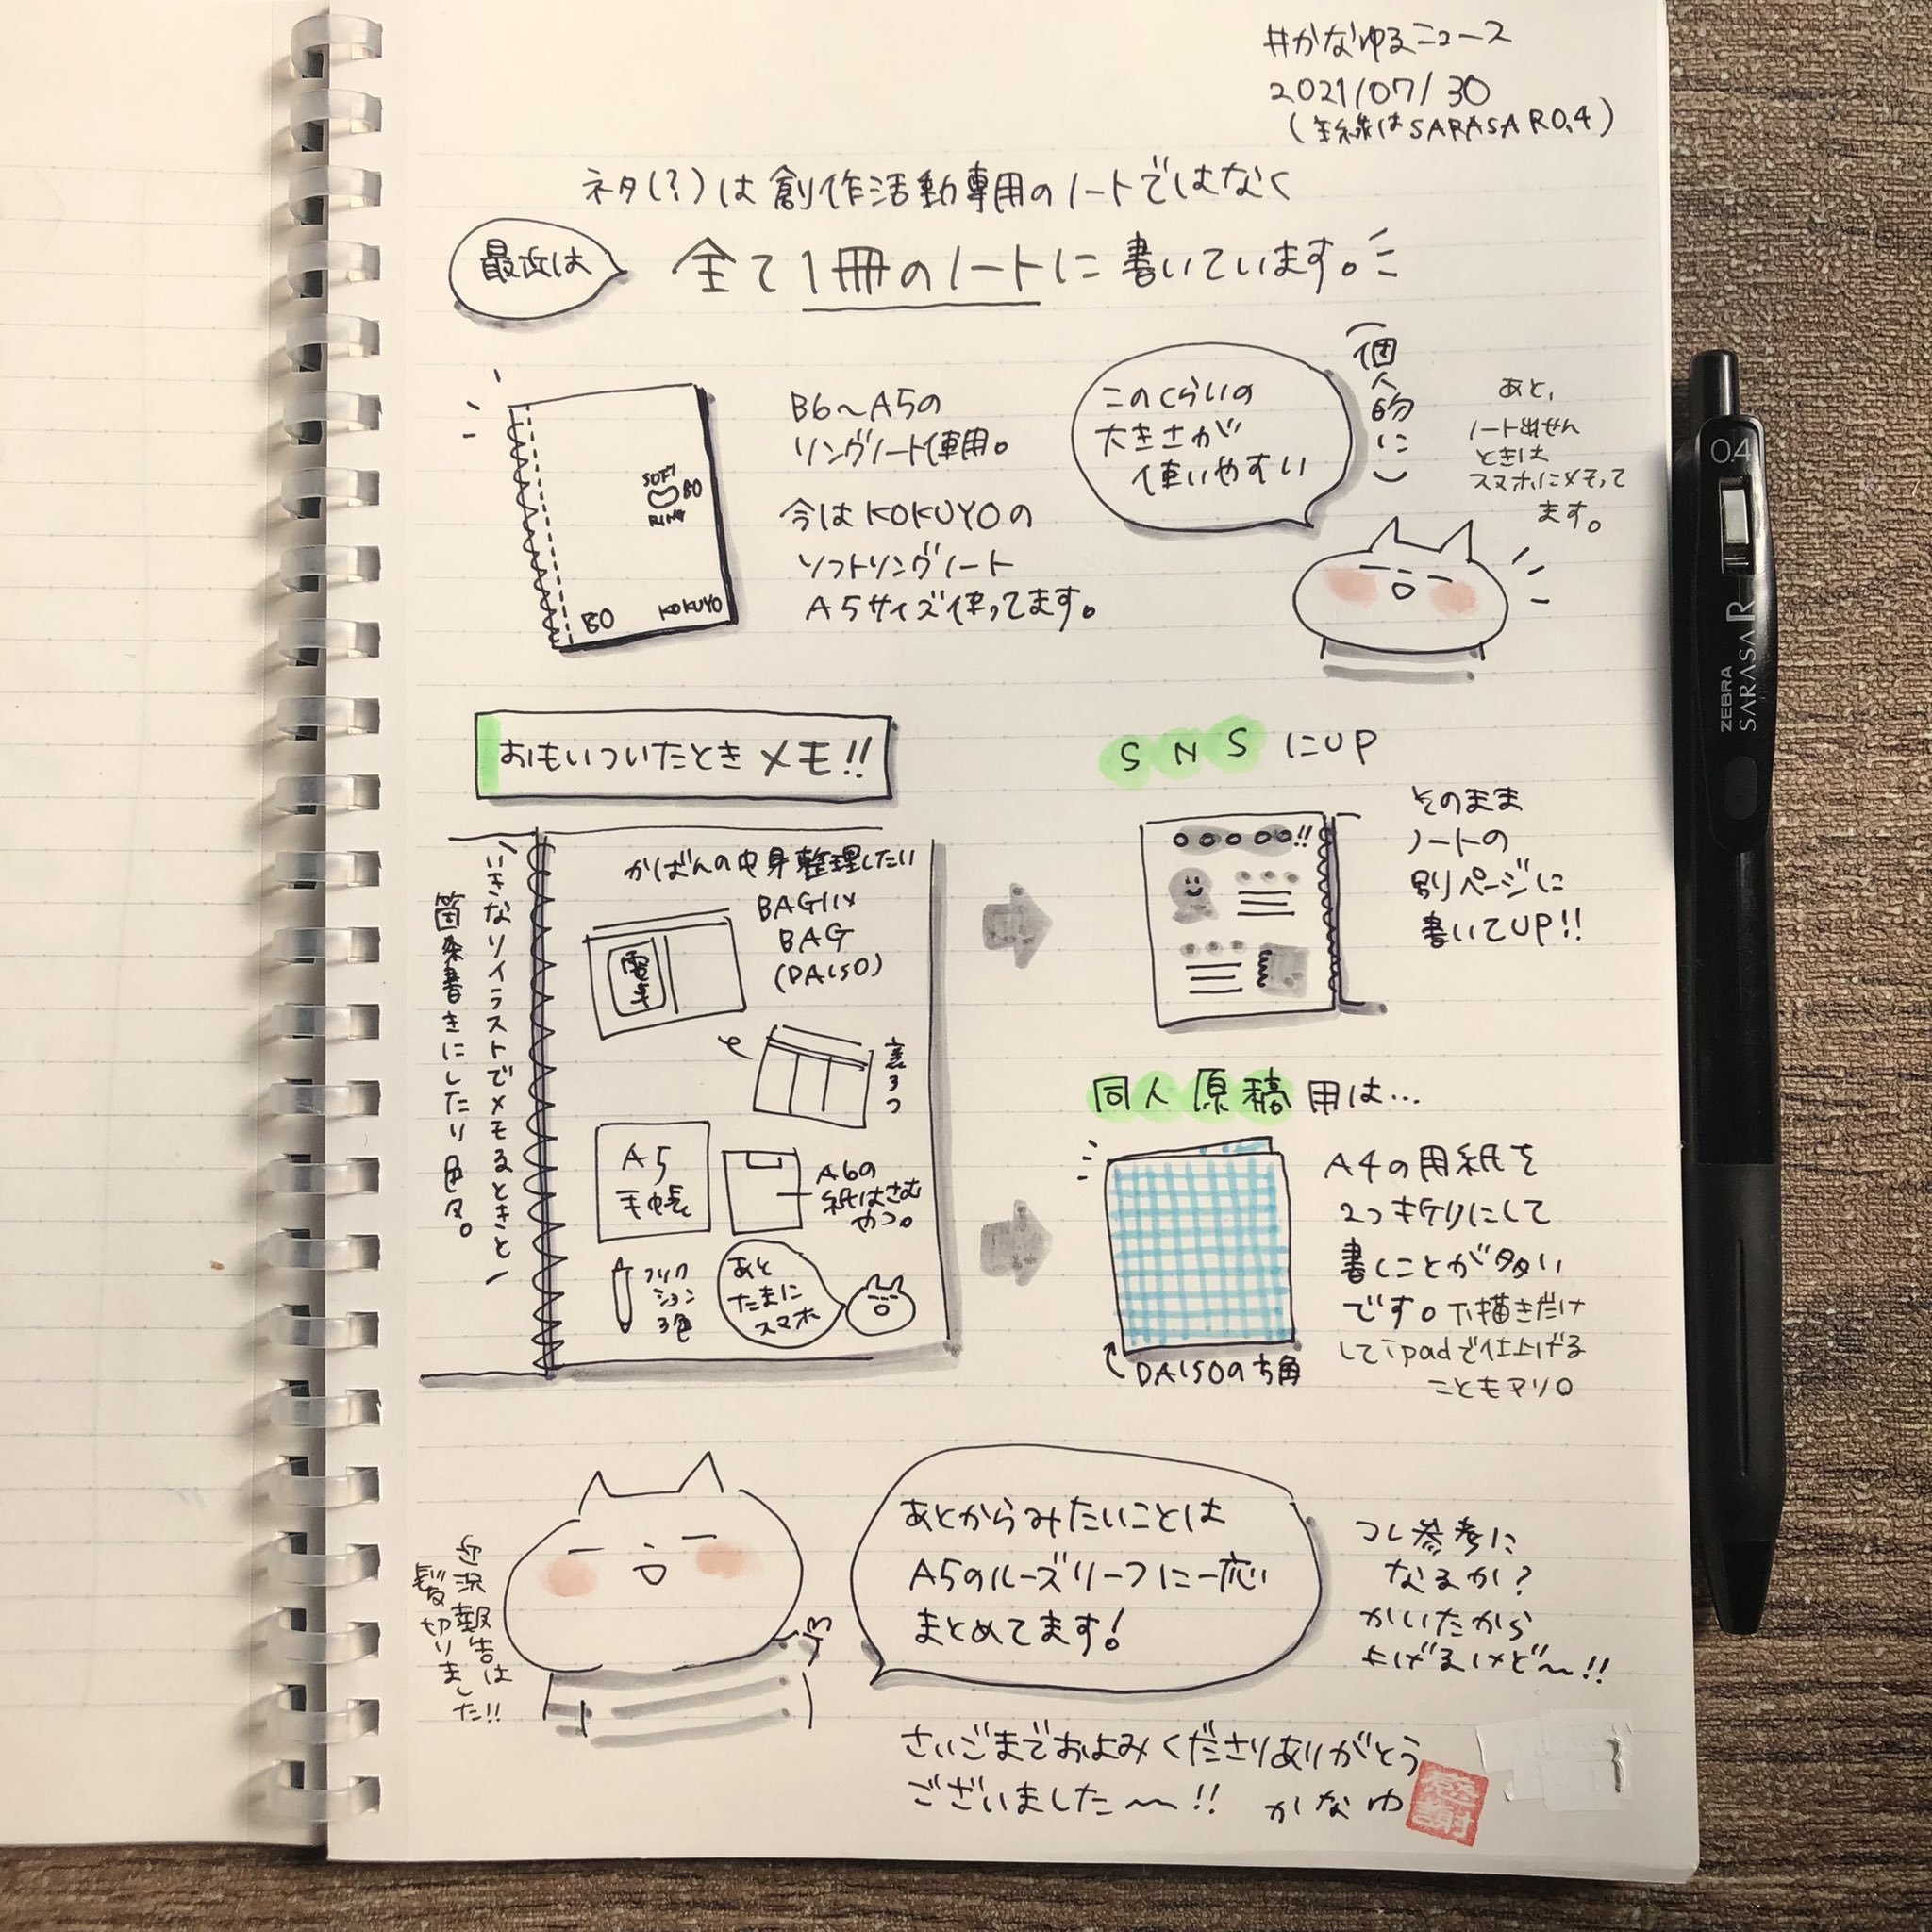 #かなゆるニュース
2021/07/30
(主線はSARASA R0.4)
ネタ(?)は創作活動専用のノートではなく
最近は
全て1冊のノートに書いています。
SOFT
RING
BO
BO
KOKUYO
B6〜A5の
リングノート使用。
今はKOKUYOの
ソフトリングノート
A5サイズ使ってます。
このくらいの
大きさが
使いやすい
(個人的に)
あと、
ノート出せん
ときは
スマホにメモって
ます。
おもいついたときメモ!!
いきなりイラストでメモるときと
箇条書きにしたり色々。
かばんの中身整理したい
BAG IN
BAG
(DAISO)
電卓
窓3つ
A5
手帳
A6の
紙はさむ
やつ。
フリク
ション
3色
あと
たまに
スマホ
SNSにUP
○○○○○!!
そのまま
ノートの
別ページに
書いてUP!!
同人原稿用は…
DAISOの方角
A4の用紙を
2つ折りにして
書くことが多い
です。下描きだけ
してipadで仕上げる
こともアリ。
近況報告は
髪切りました!!
あとからみたいことは
A5のルーズリーフに一応
まとめてます!
コレ参考に
なるか?
かいたから
上げるけど〜!!
さいごまでおよみくださりありがとう
ございました〜!! かなゆ
感謝
0.4
ZEBRA
SARASA R